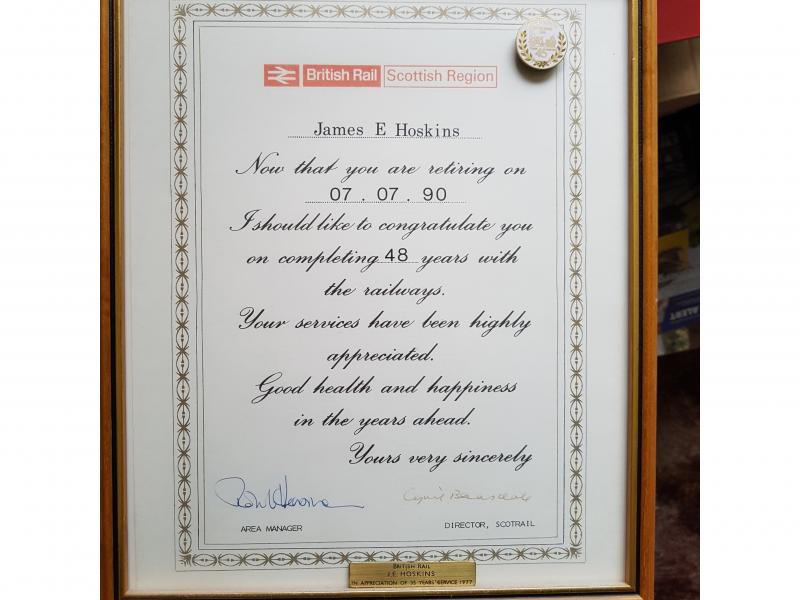 British Rail Scottish Region
James E Hoskins
Now that you are retiring on
07.07.90
I should like to congratulate you
on completing 48 years with
the railways.
Your services have been highly
appreciated.
Good health and happiness
in the years ahead.
Yours very sincerely
AREA MANAGER
DIRECTOR, SCOTRAIL
BRITISH RAIL
J.E. HOSKINS
IN APPRECIATION OF 35 YEARS' SERVICE 1977
ALERT